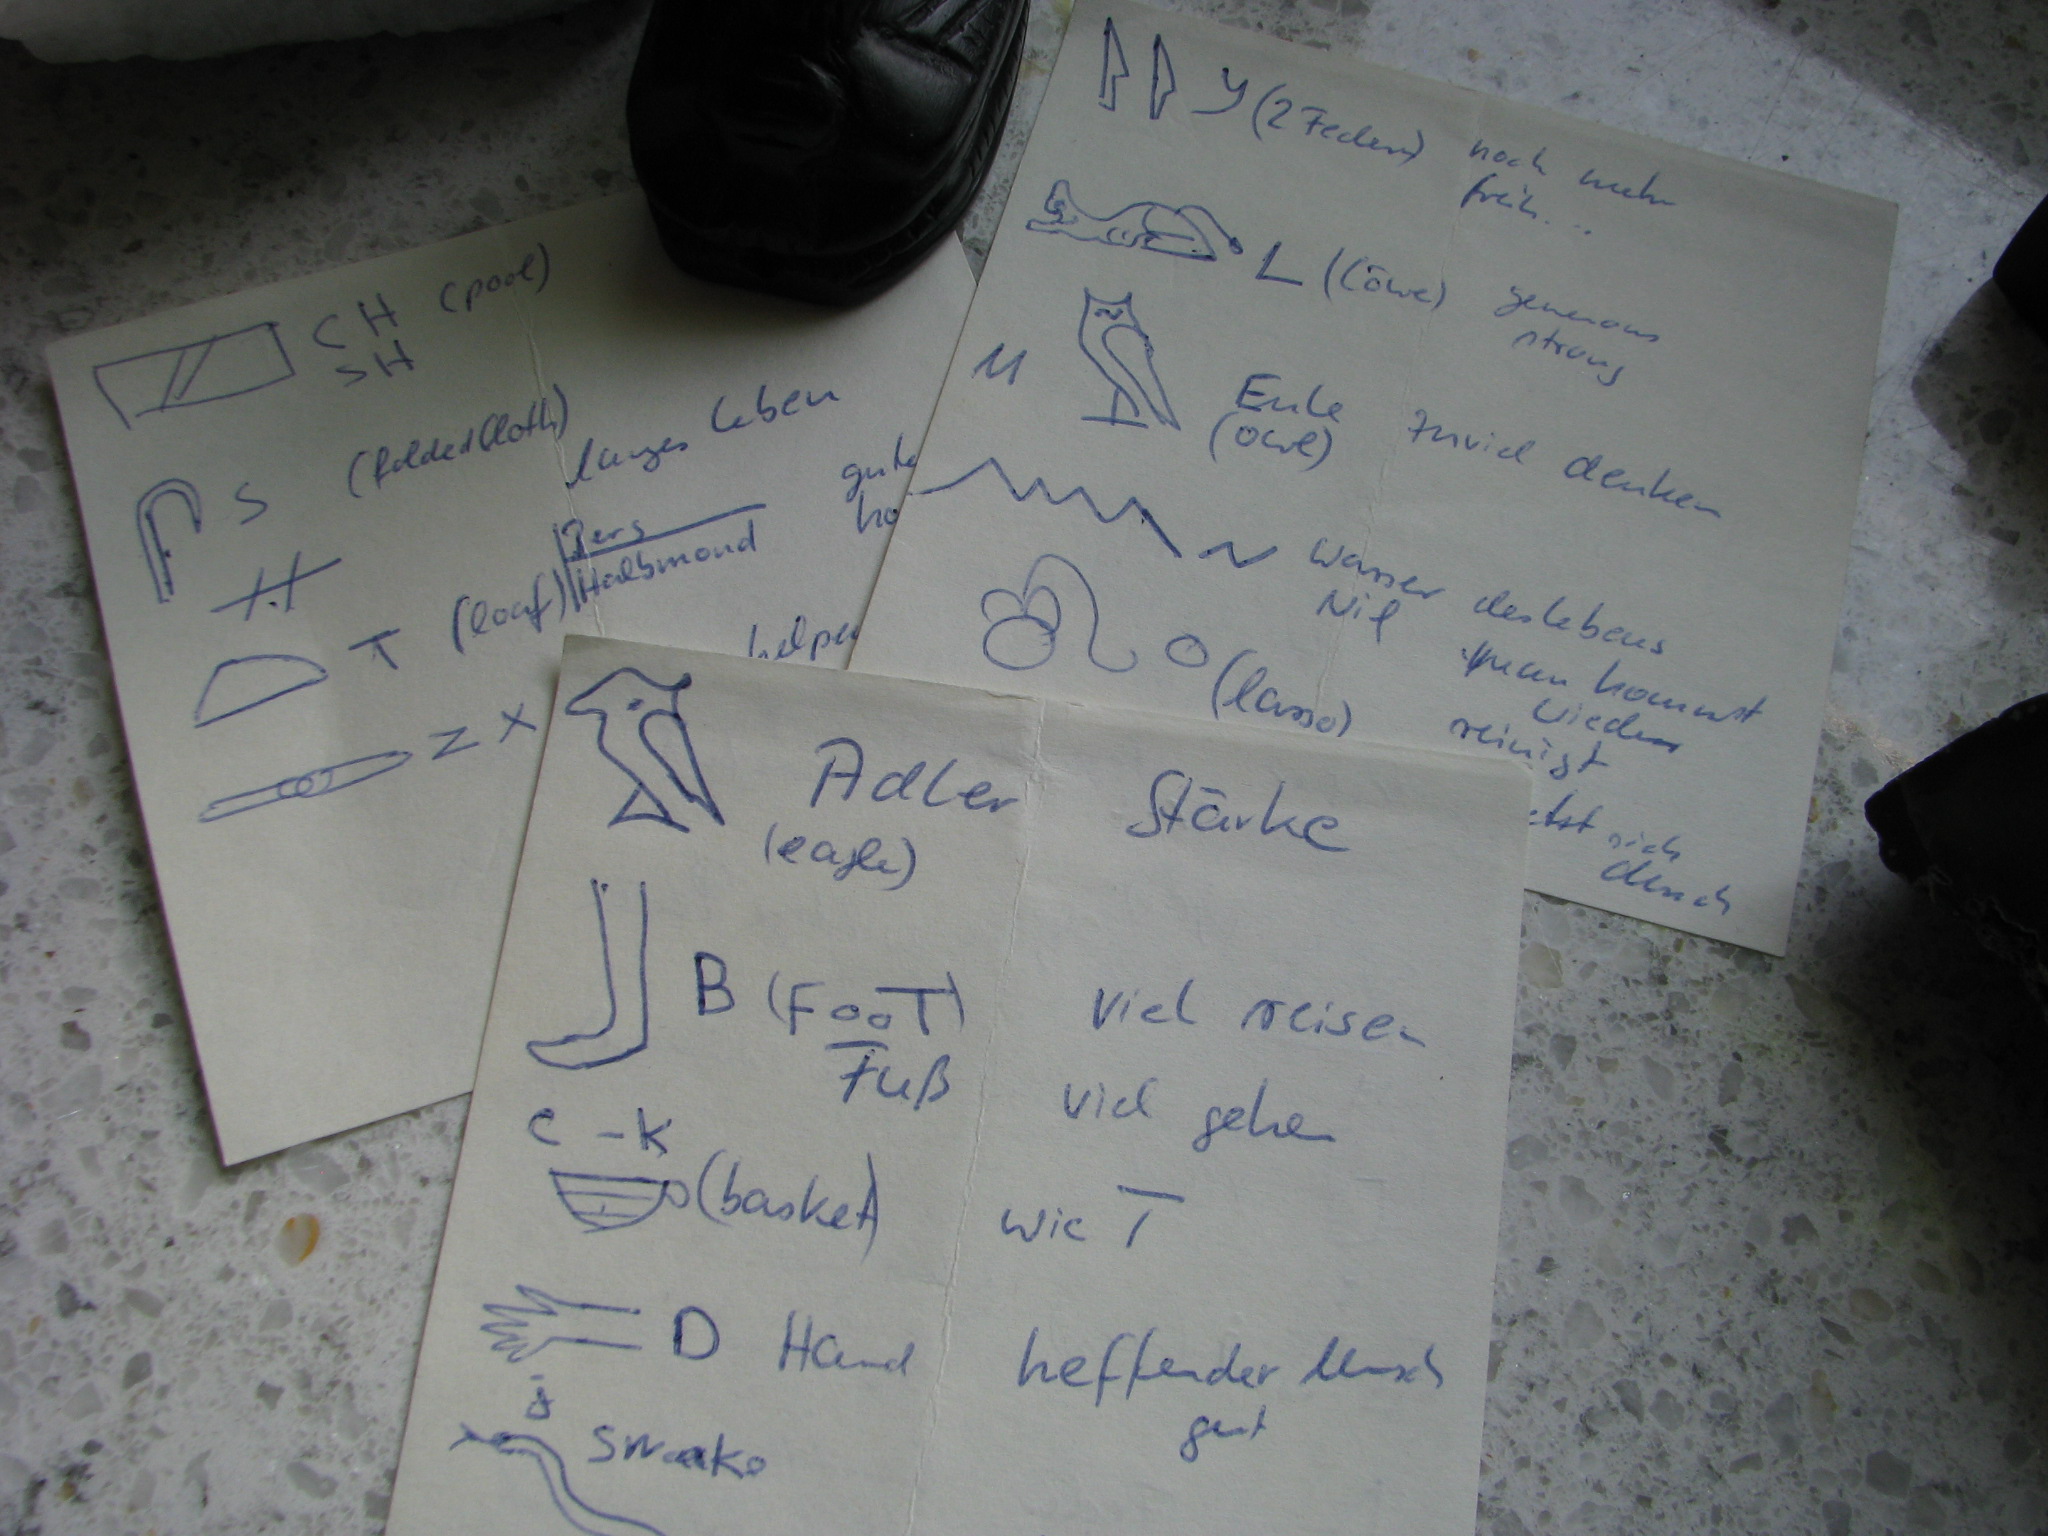 CH (pool)
SH
S (folded cloth) langes leben
gute
ho
T (loaf) Berg
Halbmond
Z X
helpe
Y (2 Federn) noch mehr
freih...
L (Löwe) generous
strong
M Eule zuviel denken
(owl)
N Wasser des lebens
Nil man kommt
wieder
O (lasso) reinigt
etzt sich
durch
Adler Stärke
(eagle)
B (FOOT) viel reisen
Fuß viel gehen
C - K
(basket) wie T
D Hand helfender Mensch
gut
snake